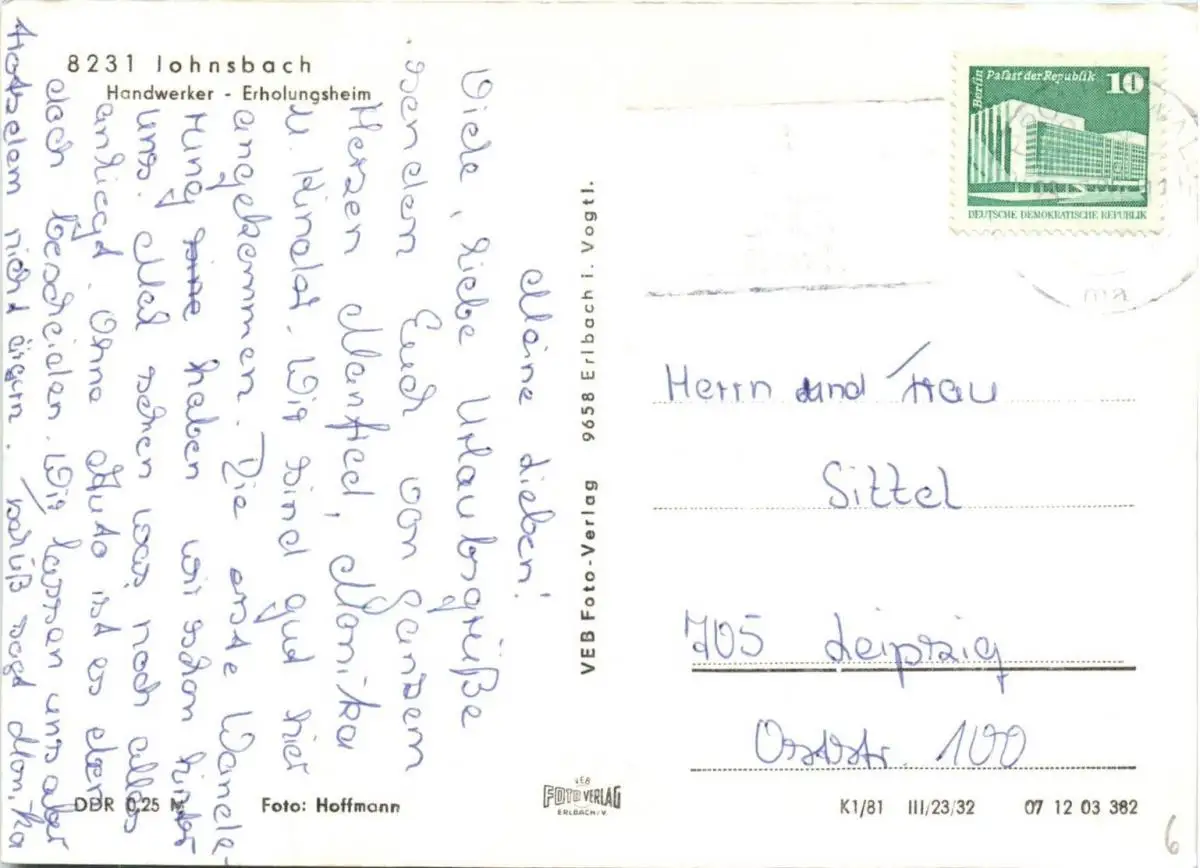 8231 Johnsbach
Handwerker - Erholungsheim
Meine Lieben!
Viele, liebe Urlaubsgrüße
senden Euch von Ganzem
Herzen Manfred, Monika
u. Kinder. Wir sind gut hier
angekommen. Die erste Wande-
rung sine haben wir schon hinter
uns. Mal sehen was noch alles
anliegt. Ohne Auto ist es eben
doch bescheiden. Wir lassen uns aber
trotzdem nicht ärgern. Gruß sagt Monika
VEB Foto-Verlag 9658 Erlbach i. Vogtl.
Berlin Palast der Republik 10
DEUTSCHE DEMOKRATISCHE REPUBLIK
ma
Herrn und Frau
Sittel
705 Leipzig
Oststr. 100
DDR 0,25 M Foto: Hoffmann
VEB
FOTO VERLAG
ERLBACH/V.
K1/81 III/23/32 07 12 03 382
6